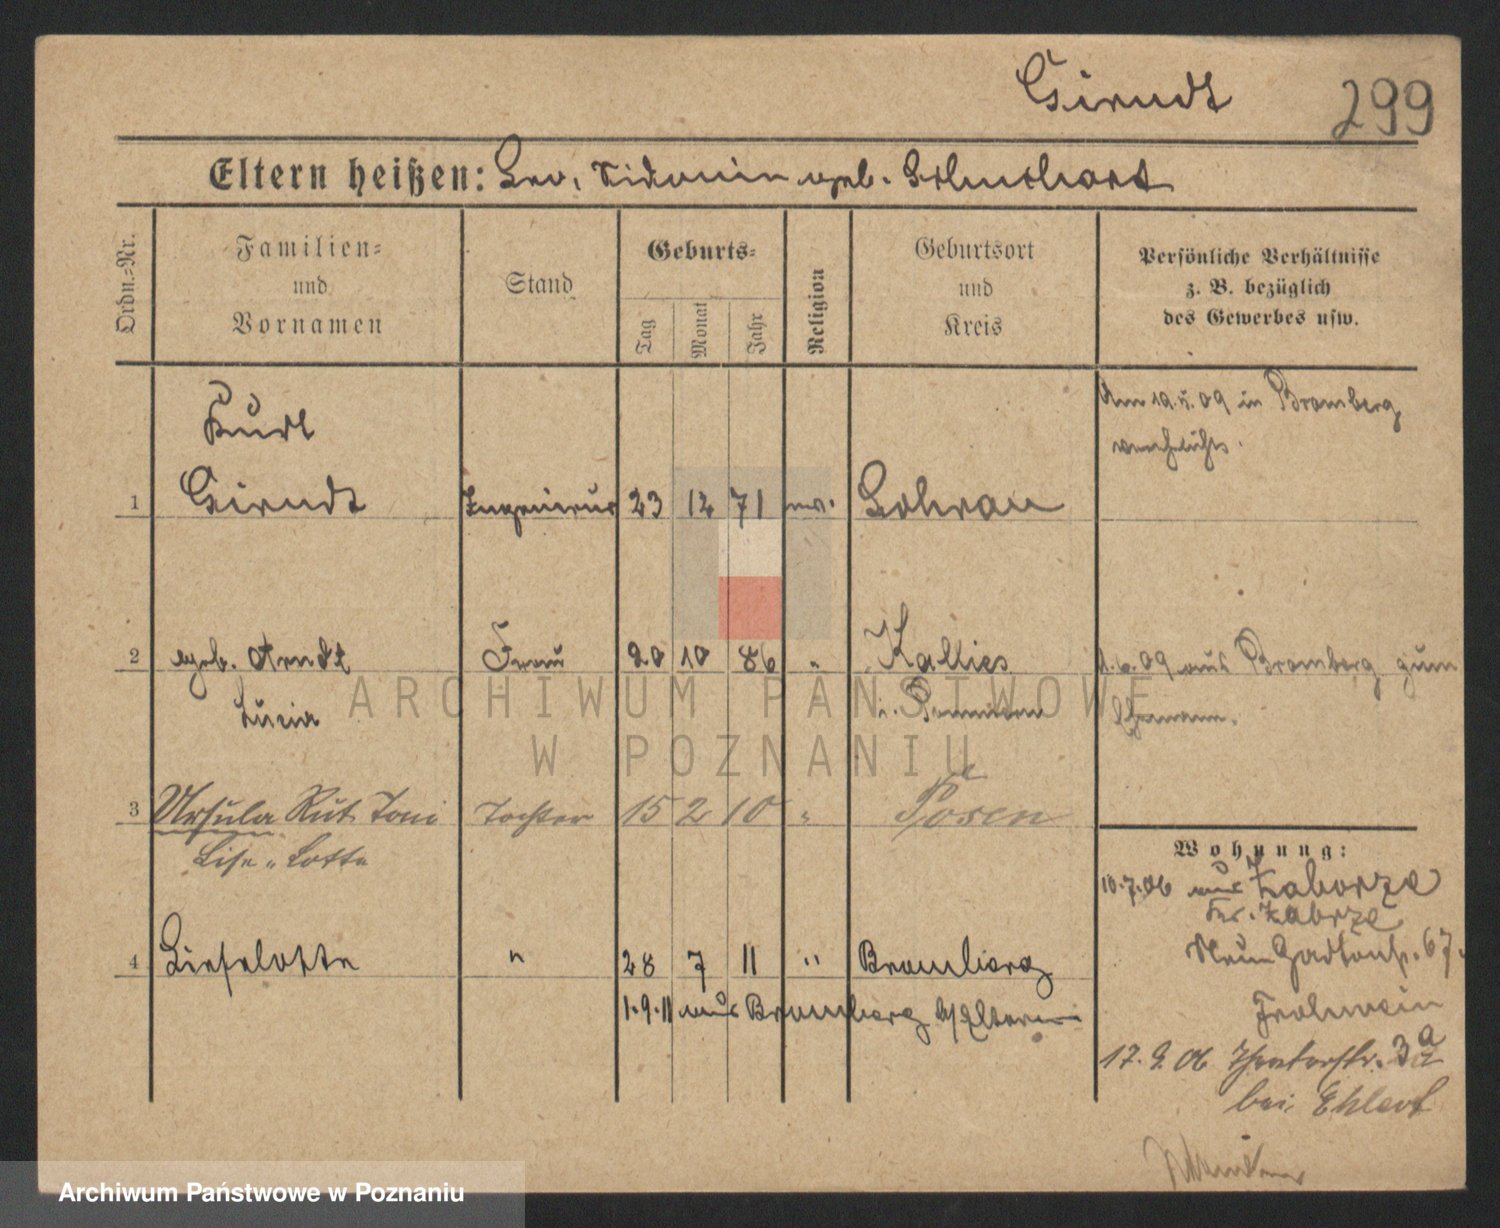 Girndt 299
Eltern heißen: Leo, Sidonie geb.
Ordn.-Nr.
Familien-
und
Vornamen
Stand
Geburts-
Tag
Monat
Jahr
Religion
Geburtsort
und
Kreis
Persönliche Verhältnisse
z. B. bezüglich
des Gewerbes usw.
Kurt
Am 19.5.09 in Bromberg
verehelicht.
1 Girndt Ingenieur 23 12 71 ev. Sohrau
2 geb. Arndt Frau 20 10 86 " Kallies
1.6.09 aus Bromberg zum
Lucia i. Pommern
Ehemann.
ARCHIWUM PAŃSTWOWE
W POZNANIU
3 Ursula Rut Toni Tochter 15 2 10 " Posen
Lise-Lotte
Wohnung:
10.7.06 aus Zaborze
Kr. Zabrze
Neue Gartenstr. 67.
4 Lieselotte " 28 7 11 " Bromberg
1.9.11 aus Bromberg z/Eltern
Frohwein
17.9.06 Theaterstr. 3a
bei Ehlert
Archiwum Państwowe w Poznaniu